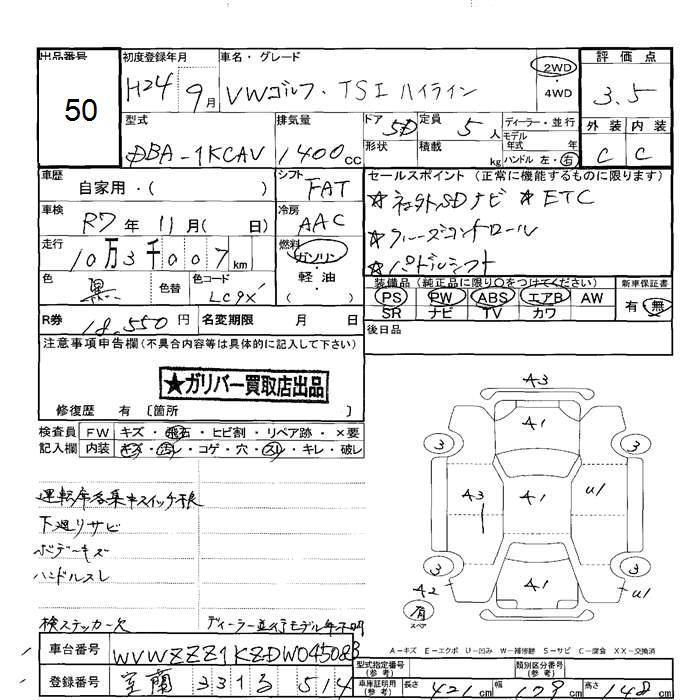 出品番号 初度登録年月 車名・グレード 2WD 評価点
50 H24 9月 VWゴルフ・TSI ハイライン 4WD 3.5
型式 排気量 ドア 5D 定員 5人 ディーラー・並行 外装 内装
DBA-1KCAV 1400cc 形状 積載 kg モデル年式 年 C C
ハンドル 左・右
車歴 自家用・( ) シフト FAT セールスポイント (正常に機能するものに限ります)
車検 R7年 11月 ( 日) 冷房 AAC ★社外SDナビ ★ETC
走行 10万3千007km 燃料 ガソリン・軽油 ( ) ★クルーズコントロール
★パドルシフト
色 黒 色替 色コード LC9X 装備品 (純正品に限り○をつけてください) 新車保証書
PS PW ABS エアB AW 有・無
SR ナビ TV カワ
R券 18,550円 名変期限 月 日 後日品
注意事項申告欄(不具合内容等は具体的に記入して下さい)
★ガリバー買取店出品
修復歴 有 [箇所 ]
検査員記入欄 FW キズ・飛石・ヒビ割・リペア跡・×要
内装 キズ・汚レ・コゲ・穴・スレ・キレ・破レ
A3
A1
3 3
A3 A1 U1
3 3
A1
A2 U1
有 スペア
運転席各集中スイッチ根
下廻りサビ
ボデーキズ
ハンドルスレ
検ステッカー欠 ディーラー並行モデル年不明
A-キズ E-エクボ U-凹み W-補修跡 S-サビ C-腐食 XX-交換済
車台番号 WVWZZZ1KZDW045083
型式指定番号(参考) 類別区分番号(参考)
登録番号 室蘭 331 る 514
車庫証明用(参考) 長さ 421cm 幅 179cm 高さ 148cm